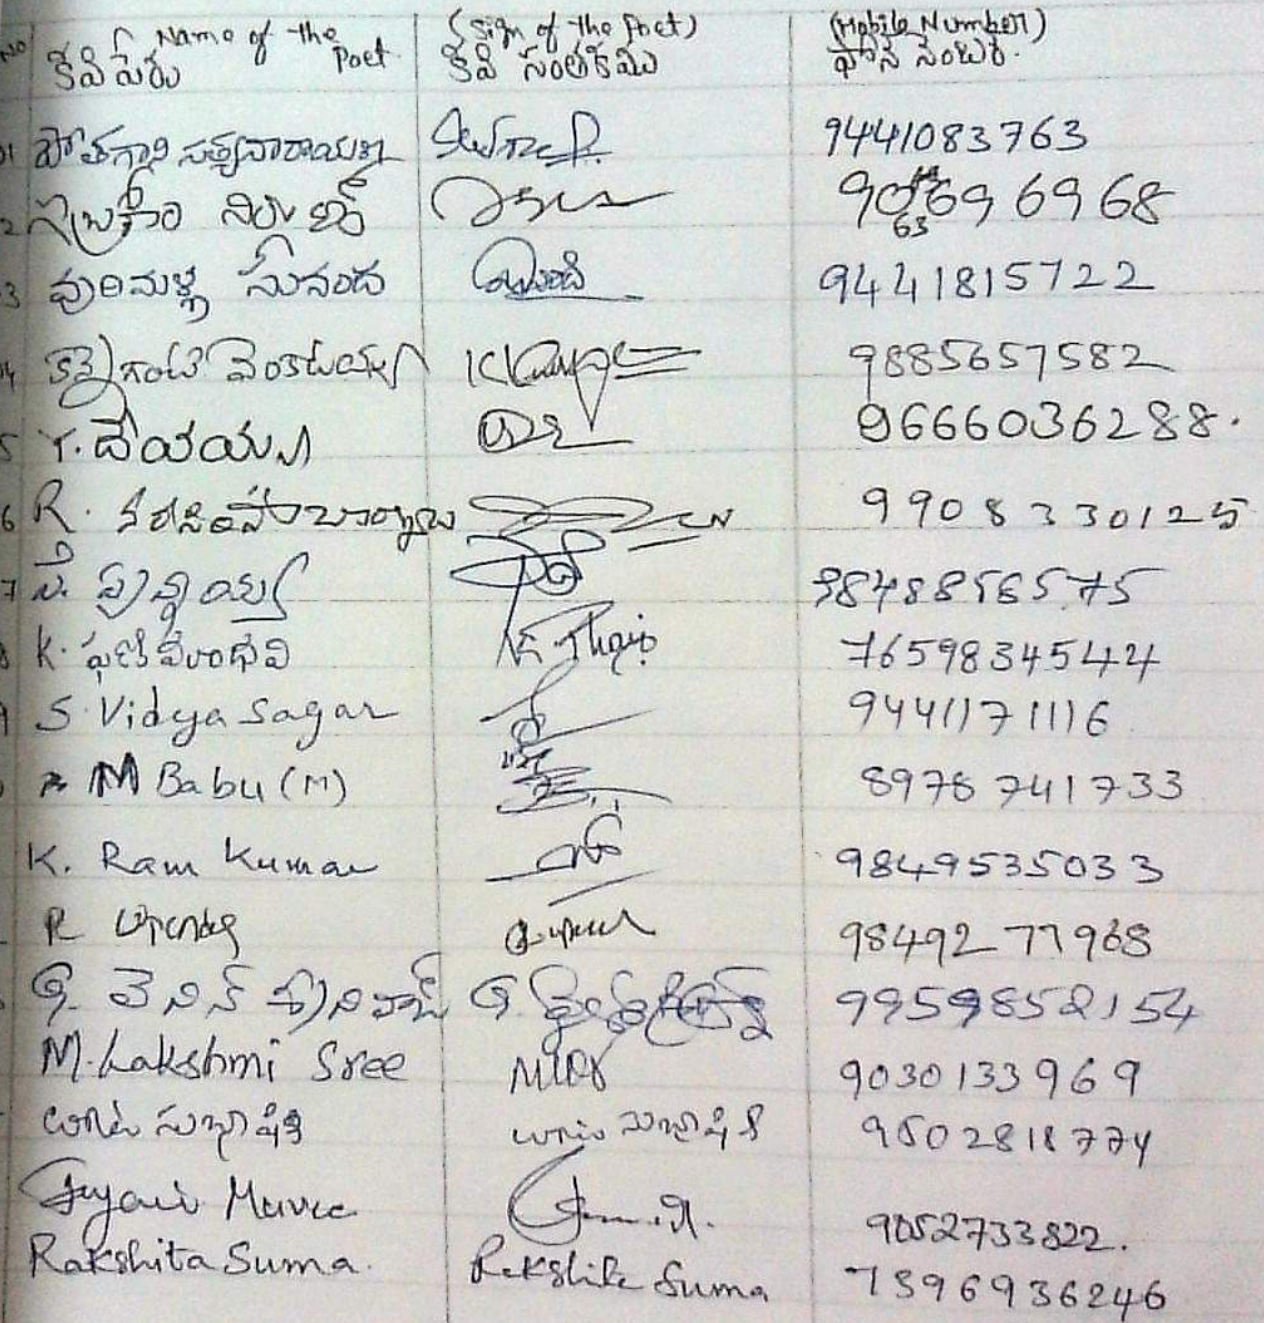 NO Name of the Poet (Sign of the Poet) (Mobile Number)
కవి పేరు కవి సంతకము ఫోన్ నెంబర్.
01 పోతగాని సత్యనారాయణ 9441083763
2 9069 6968
63
3 పురిమళ్ల సునంద సునంద 9441815722
4 కన్నెగంటి వెంకటయ్య 9885657582
5 Y. దేవయ్య 9666036288.
6 R. నరసింహా 9908330125
7 పున్నయ్య 9848856575
8 K. ఫణి మాధవి K. Phani 7659834544
9 S. Vidya Sagar 9441171116
M Babu (M) 8978741733
K. Ram Kumar 9849535033
R Upender 9849277968
G. లెనిన్ శ్రీనివాస్ G. 9959852154
M. Lakshmi Sree 9030133969
సుభాషిణి సుభాషిణి 9502818774
9052733822.
Rakshita Suma. Rakshita Suma 7396936246